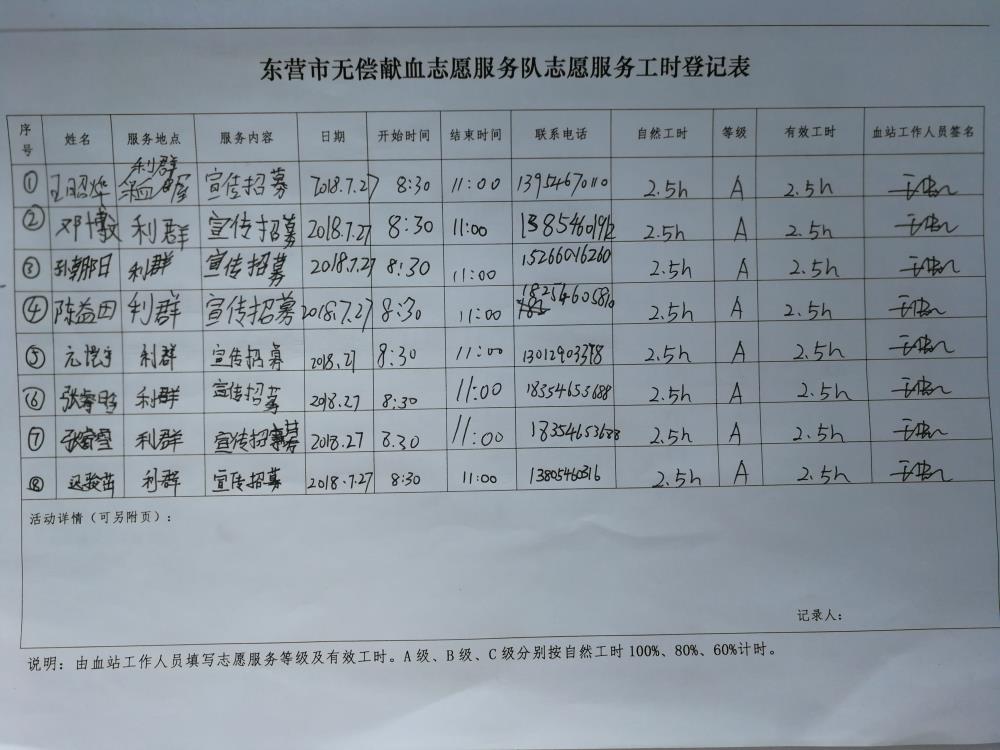 东营市无偿献血志愿服务队志愿服务工时登记表
序号 姓名 服务地点 服务内容 日期 开始时间 结束时间 联系电话 自然工时 等级 有效工时 血站工作人员签名
① 王昭烨 利群 宣传招募 2018.7.27 8:30 11:00 13954670110 2.5h A 2.5h
② 邓博文 利群 宣传招募 2018.7.27 8:30 11:00 2.5h A 2.5h
③ 利群 宣传招募 2018.7.27 8:30 11:00 15266016260 2.5h A 2.5h
④ 陈益田 利群 宣传招募 2018.7.27 8:30 11:00 2.5h A 2.5h
⑤ 利群 宣传招募 2018.27 8:30 11:00 2.5h A 2.5h
⑥ 利群 宣传招募 2018.27 8:30 11:00 18354653688 2.5h A 2.5h
⑦ 利群 宣传招募 2018.27 8.30 11:00 18354653688 2.5h A 2.5h
⑧ 利群 宣传招募 2018.7.27 8:30 11:00 13805460316 2.5h A 2.5h
活动详情（可另附页）：
记录人：
说明：由血站工作人员填写志愿服务等级及有效工时。A 级、B 级、C 级分别按自然工时 100%、80%、60%计时。